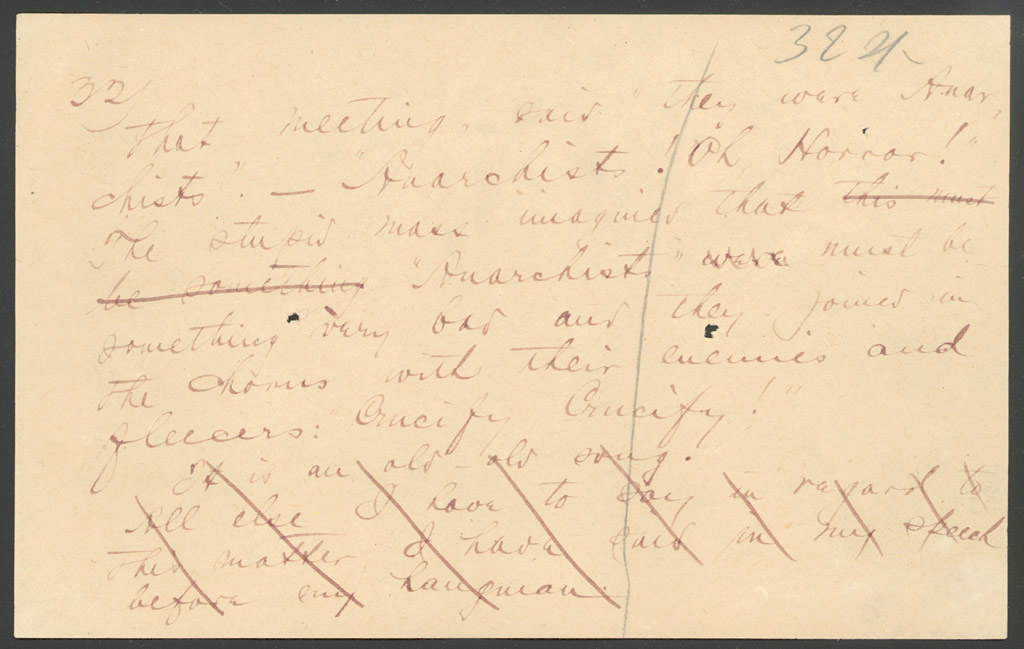 32
32
That meeting, said "they were Anar,
chists". — "Anarchists! "Oh, Horror!"
The stupid mass imagined that this must
be something "Anarchists" were must be
something very bad and they joined in
the chorus with their enemies and
fleecers: Crucify, Crucify!"
It is an old - old song.
All else I have to say in regard to
this matter, I have said in my speech
before my hangman.